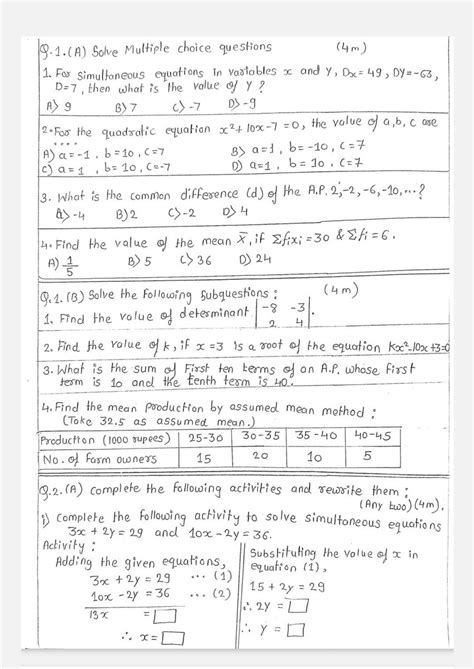 Q.1.(A) Solve Multiple choice questions (4m)
1. For simultaneous equations in variables x and y, Dx = 49, Dy = -63,
D=7, then what is the value of y ?
A) 9 B) 7 C) -7 D) -9
2. For the quadratic equation x²+10x-7=0, the value of a,b,c are
....
A) a=-1, b=10, c=7 B) a=1, b=-10, c=7
C) a=1, b=10, c=-7 D) a=1, b=10, c=7
3. What is the common difference (d) of the A.P. 2,-2,-6,-10,...?
A) -4 B) 2 C) -2 D) 4
4. Find the value of the mean X̄, if Σfixi = 30 & Σfi = 6.
A) 1/5 B) 5 C) 36 D) 24
Q.1.(B) Solve the following subquestions : (4m)
1. Find the value of determinant |-8 -3|
|2 4|.
2. Find the value of k, if x=3 is a root of the equation kx²-10x+3=0
3. What is the sum of First ten terms of an A.P. whose first
term is 10 and the tenth term is 40.
4. Find the mean production by assumed mean mathod :
(Take 32.5 as assumed mean.)
Production (1000 rupees) 25-30 30-35 35-40 40-45
No. of Farm owners 15 20 10 5
Q.2.(A) Complete the following activities and rewrite them :
(Any two) (4m).
i) Complete the following activity to solve simultaneous equations
3x + 2y = 29 and 10x - 2y = 36.
Activity :
Adding the given equations,
3x + 2y = 29 ... (1)
10x - 2y = 36 ... (2)
13x = □
∴ x = □
Substituting the value of x in
equation (1),
15 + 2y = 29
∴ 2y = □
∴ y = □